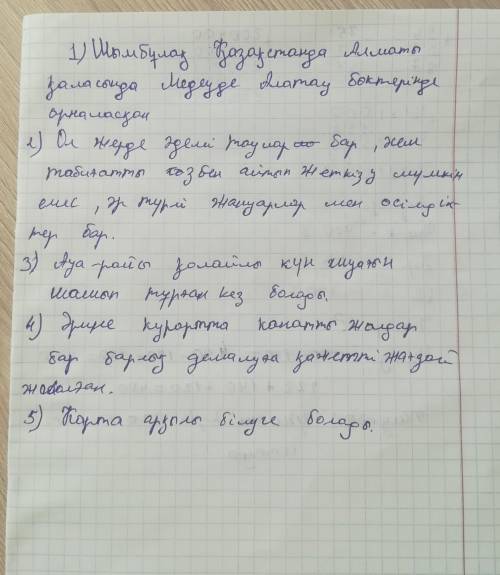 1) Шымбұлақ Қазақстанда Алматы
қаласында Медеуде Алатау бөктерінде
орналасқан
2) Ол жерде әдемі таулар бар, жем
табиғатты сөзбен айтып жеткізу мүмкін
емес, әр түрлі жануарлар мен өсімдік-
тер бар.
3) Ауа-райы қолайлы күн шуағын
шашып тұрған кез болады.
4) Әрине курортта қанатты жолдар
бар барлық демалуға қажетті жағдай
жасалған.
5) Карта арқылы білуге болады.